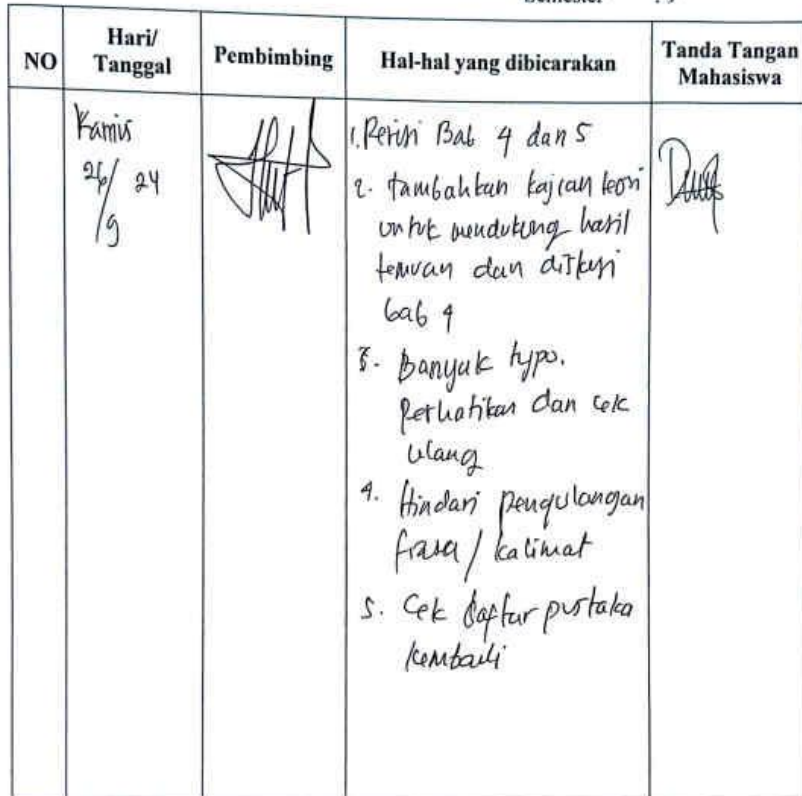 NO
Hari/
Tanggal
Pembimbing
Hal-hal yang dibicarakan
Tanda Tangan
Mahasiswa
Kamis
26/9 24
1. Revisi Bab 4 dan 5
2. tambahkan kajian teori
untuk mendukung hasil
temuan dan diskusi
bab 4
3. Banyak typo.
Perhatikan dan cek
ulang
4. Hindari pengulangan
frasa / kalimat
5. Cek daftar pustaka
kembali